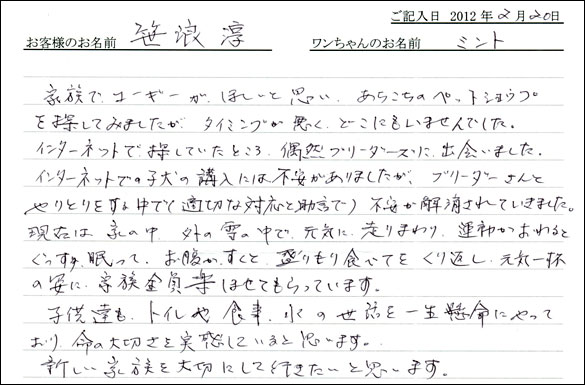 ご記入日 2012年2月20日
お客様のお名前 笹浪 淳 ワンちゃんのお名前 ミント
家族で、コーギーが、ほしいと思い、あちこちのペットショップ
を探してみましたが、タイミングが悪く、どこにもいませんでした。
インターネットで探していたところ、偶然ブリーダーズに、出会いました。
インターネットでの子犬の講入には不安がありましたが、ブリーダーさんと
やりとりをする中で(適切な対応と助言で)不安が解消されていきました。
現在は、家の中、外の雪の中で、元気に走りまわり、運動がおわると
ぐっすり眠って、お腹がすくと、盛りもり食べてをくり返し、元気一杯
の姿に、家族全員楽ませてもらっています。
子供達も、トイレや食事、水の世話を一生懸命にやって
おり、命の大切さを実感していると思います。
新しい家族を大切にして行きたいと思います。